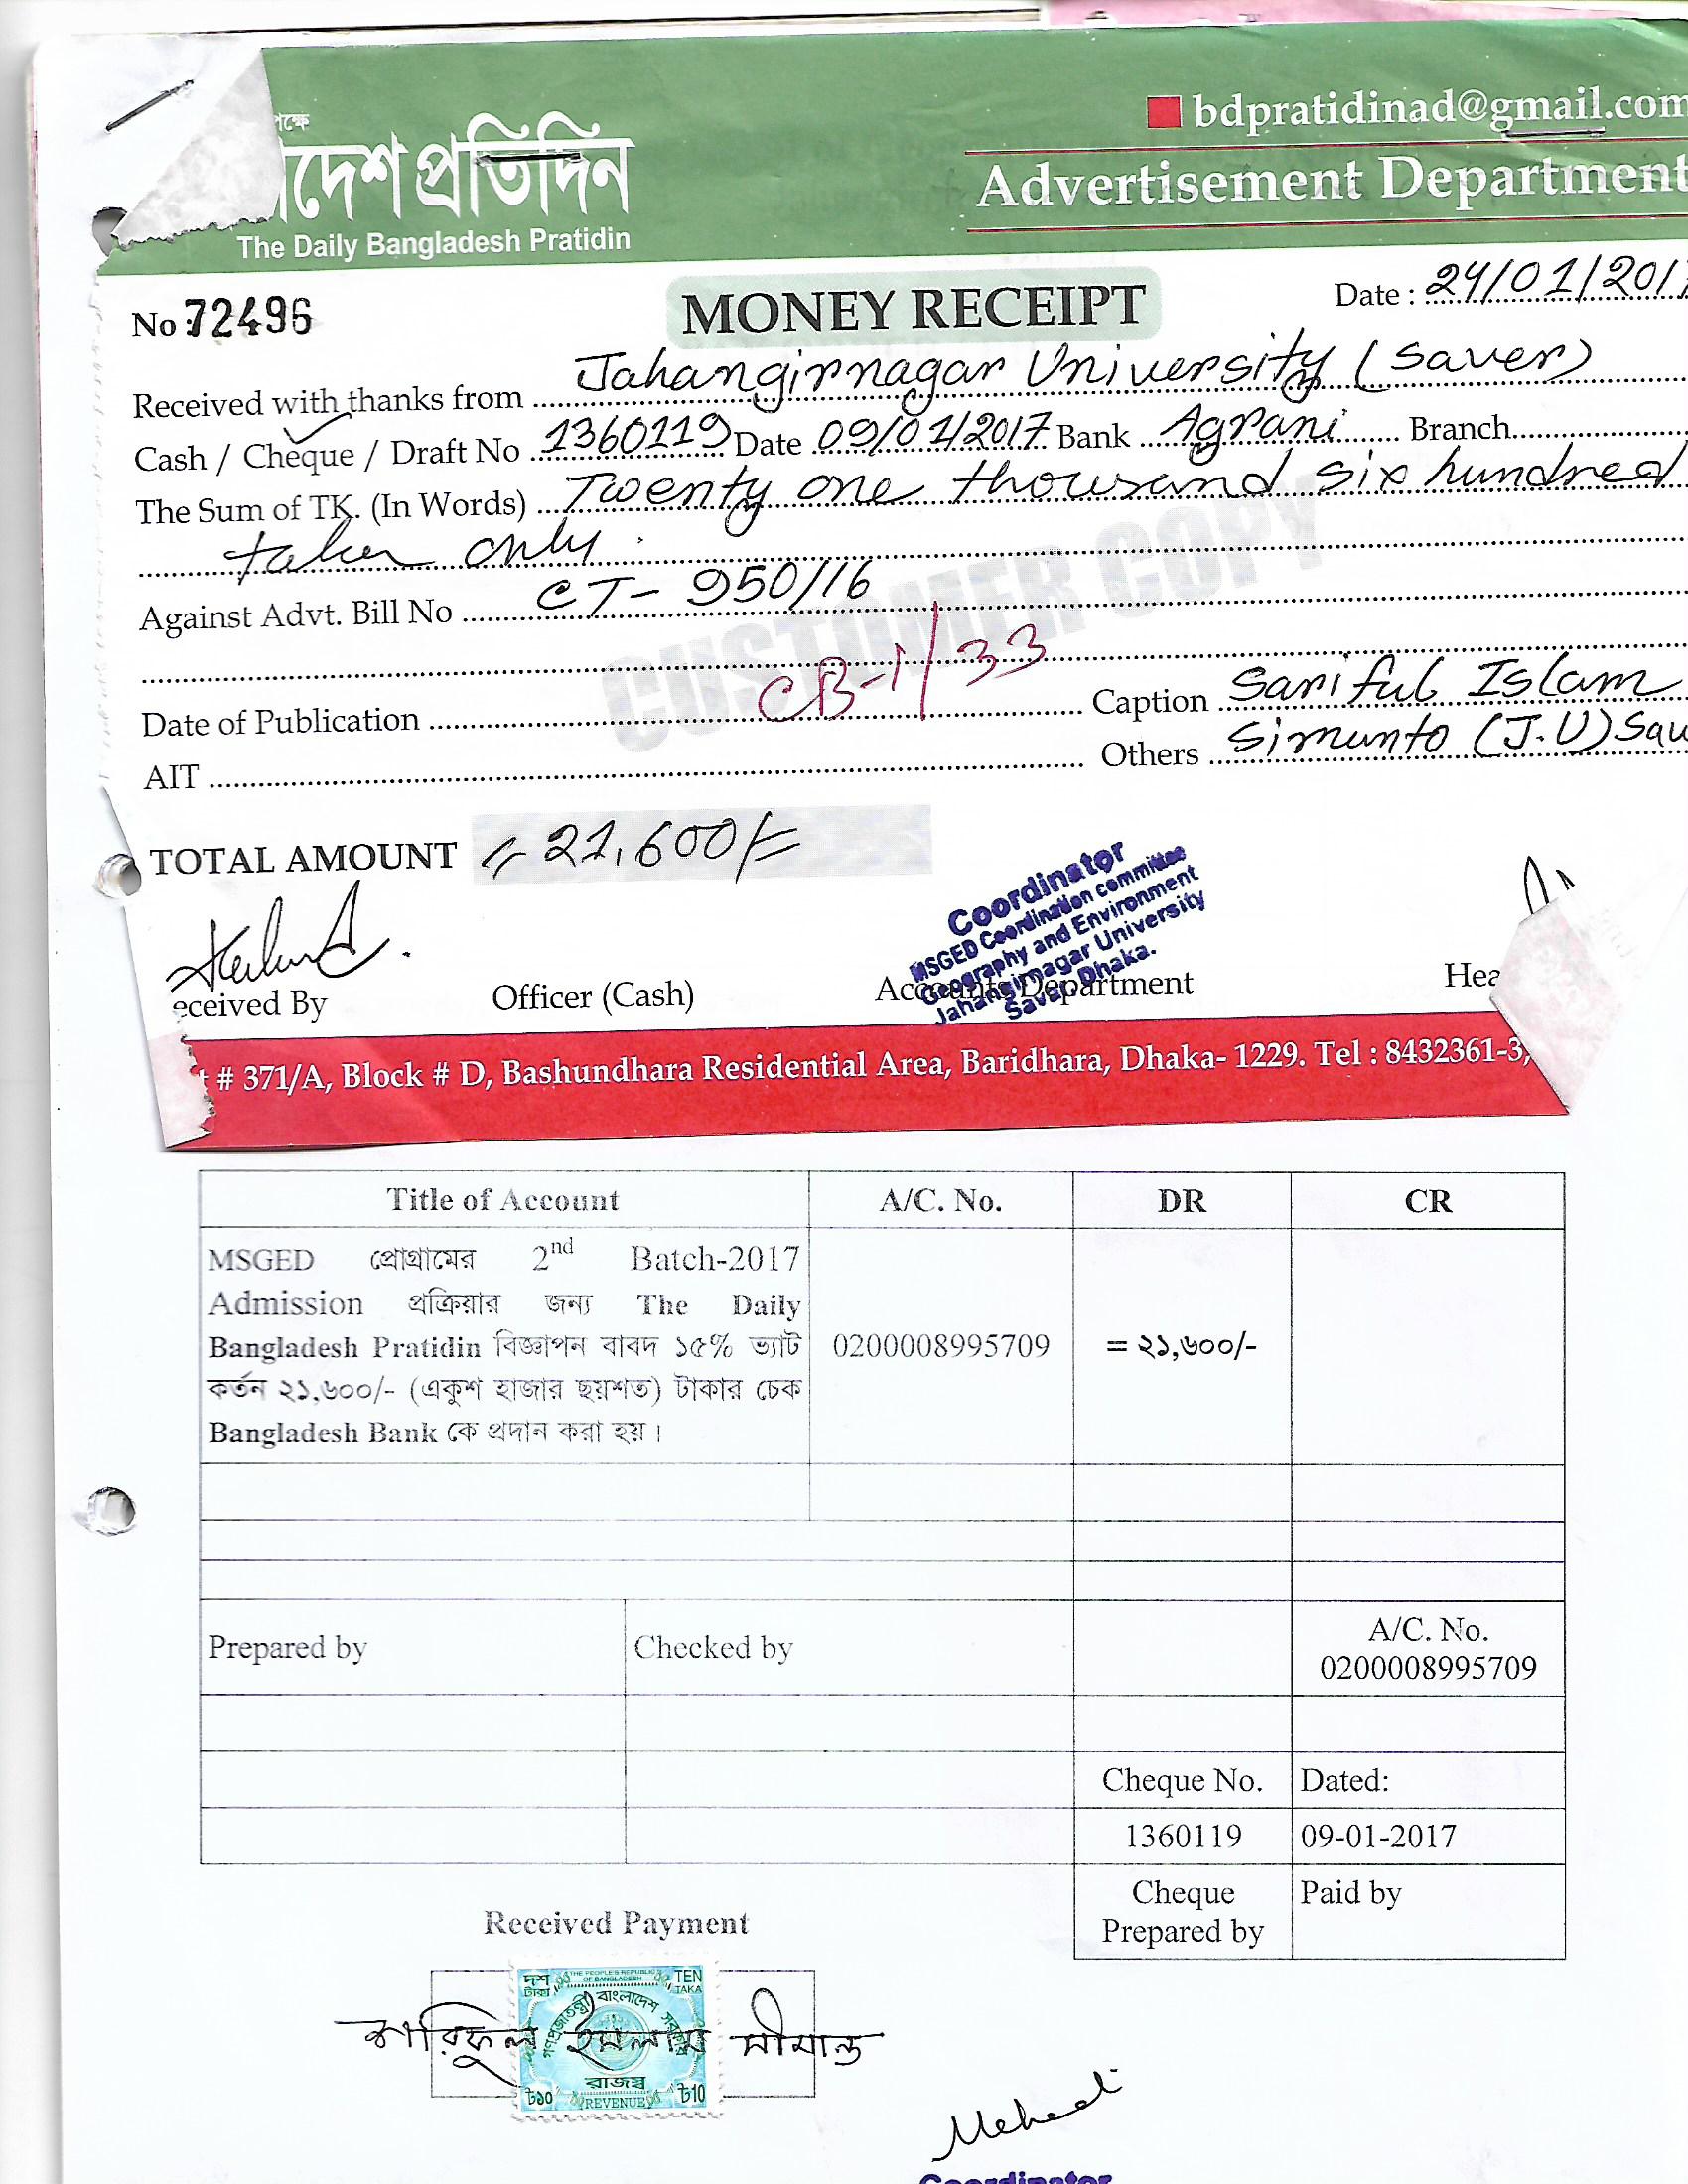 পক্ষে
দেশ প্রতিদিন
The Daily Bangladesh Pratidin
bdpratidinad@gmail.com
Advertisement Department
No 72496
MONEY RECEIPT
Date : 24/01/2017
Received with thanks from Jahangirnagar University (Saver)
Cash / Cheque / Draft No 1360119 Date 09/01/2017 Bank Agrani Branch
The Sum of TK. (In Words) Twenty one thousand six hundred
taka only.
CUSTOMER COPY
Against Advt. Bill No CT- 950/16
CB-1/33
Date of Publication Caption Sariful Islam
AIT Others Simunto (J.U) Sav
TOTAL AMOUNT = 21,600/=
Coordinator
MSGED Coordination committee
Geography and Environment
Jahangirnagar University
Savar, Dhaka.
eceived By Officer (Cash) Accounts Department Hea
# 371/A, Block # D, Bashundhara Residential Area, Baridhara, Dhaka- 1229. Tel : 8432361-3,
Title of Account A/C. No. DR CR
MSGED প্রোগ্রামের 2nd Batch-2017
Admission প্রক্রিয়ার জন্য The Daily
Bangladesh Pratidin বিজ্ঞাপন বাবদ ১৫% ভ্যাট 0200008995709 = ২১,৬০০/-
কর্তন ২১,৬০০/- (একুশ হাজার ছয়শত) টাকার চেক
Bangladesh Bank কে প্রদান করা হয়।
Prepared by Checked by A/C. No.
0200008995709
Cheque No. Dated:
1360119 09-01-2017
Cheque Paid by
Prepared by
Received Payment
দশ টাকা THE PEOPLE'S REPUBLIC OF BANGLADESH TEN TAKA
গণপ্রজাতন্ত্রী বাংলাদেশ সরকার
শারিফুল ইসলাম সীমান্ত
রাজস্ব
৳১০ REVENUE ৳10
Mehedi
Coordinator